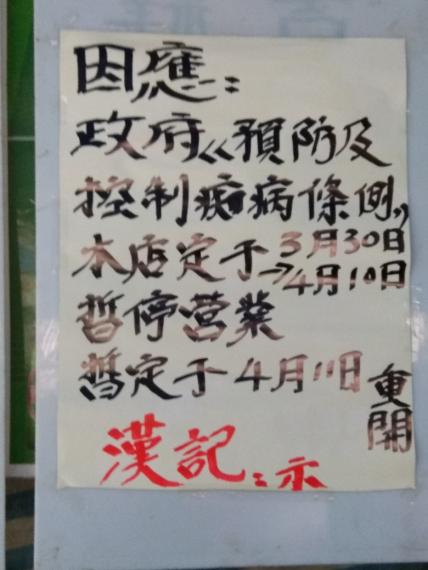 因應：
政府《預防及
控制痴病條例》
本店定于3月30日
→4月10日
暫停营業
暫定于4月11日重開
漢記：示